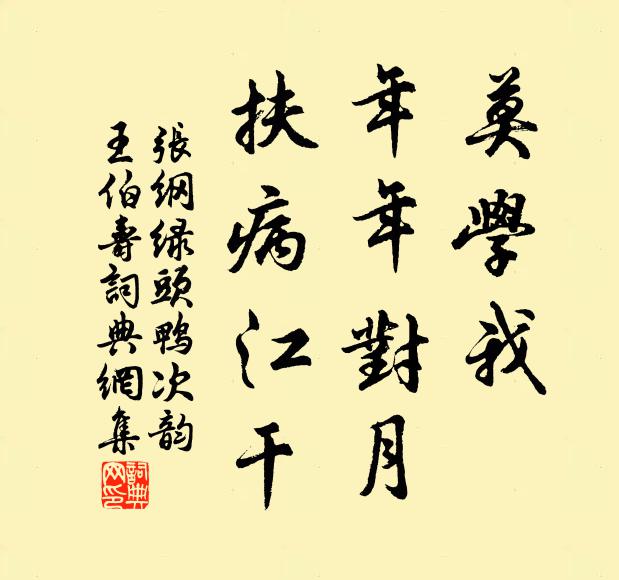 莫學我
年年對月
扶病江干
張綱绿頭鴨次韵
王伯壽詞典網集
詞典网印